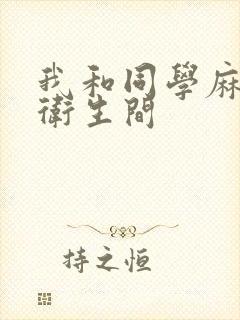 我和同學麻
衛生間
持之恒